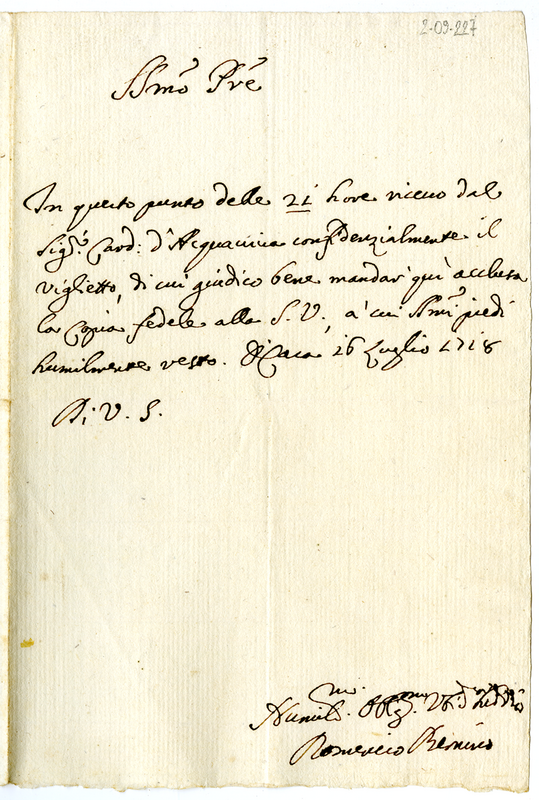 2-09-227
SSmo Pre
In questo punto delle 21 hore ricevo dal
Sigr. Card: d'Acquaviva confidenzialmente il
viglietto, di cui giudico bene mandar' quì acclusa
la copia fedele alla S. V., a' cui SSmi piedi
humilmente resto. Di Casa 26 Luglio 1718
Di V. S.
Humil.mo